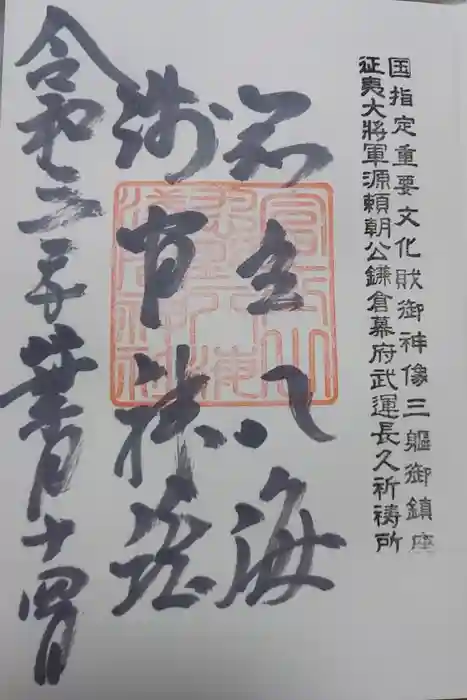 国指定重要文化財御神像三軀御鎮座
征夷大將軍源頼朝公鎌倉幕府武運長久祈祷所
八海
浅間神社
令和三年葉月十四日